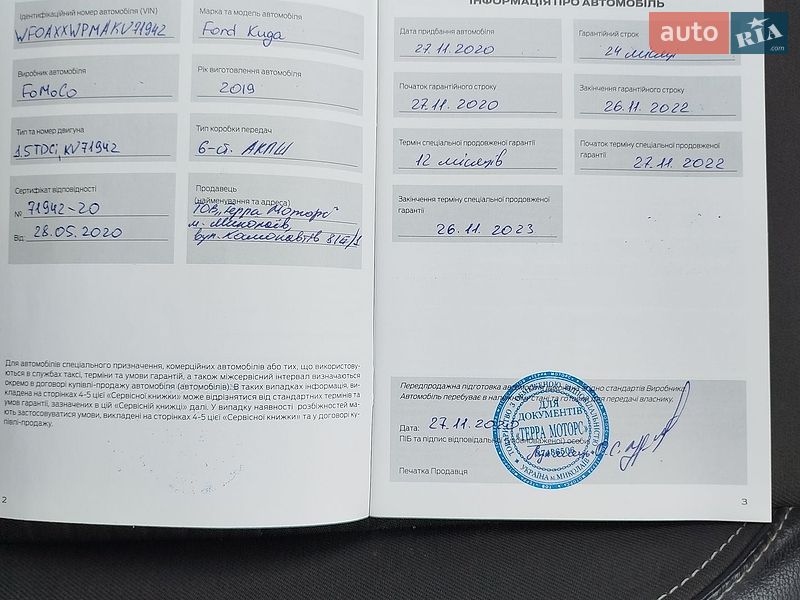 Ідентифікаційний номер автомобіля (VIN)
WF0AXXWPMAKV71942
Марка та модель автомобіля
Ford Kuga
Виробник автомобіля
FoMoCo
Рік виготовлення автомобіля
2019
Тип та номер двигуна
1.5TDCi, KV71942
Тип коробки передач
6-ст. АКПШ
Сертифікат відповідності
№ 71942-20
Від 28.05.2020
Продавець
(найменування та адреса)
ТОВ „Терра Моторс"
м. Миколаїв,
вул.
Для автомобілів спеціального призначення, комерційних автомобілів або тих, що використову-
ються в службах таксі, терміни та умови гарантій, а також міжсервісний інтервал визначаються
окремо в договорі купівлі-продажу автомобіля (автомобілів). В таких випадках інформація, ви-
кладена на сторінках 4-5 цієї «Сервісної книжки» може відрізнятися від стандартних термінів та
умов гарантій, зазначених в цій «Сервісній книжці» далі. У випадку наявності розбіжностей ма-
ють застосовуватися умови, викладені на сторінках 4-5 цієї «Сервісної книжки» та у договорі ку-
півлі-продажу.
2
ІНФОРМАЦІЯ ПРО АВТОМОБІЛЬ
Дата придбання автомобіля
27.11.2020
Гарантійний строк
24 місяці
Початок гарантійного строку
27.11.2020
Закінчення гарантійного строку
26.11.2022
Термін спеціальної продовженої гарантії
12 місяців
Початок терміну спеціальної продовженої
гарантії
27.11.2022
Закінчення терміну спеціальної продовженої
гарантії
26.11.2023
Передпродажна підготовка стандартів Виробника.
Автомобіль перебуває в готовий для передачі власнику.
Дата: 27.11.2020
ПІБ та підпис відповідальної (уповноваженої) особи
Печатка Продавця
ДЛЯ
ДОКУМЕНТІВ
"ТЕРРА МОТОРС"
УКРАЇНА м. МИКОЛАЇВ
3
auto RIA .com